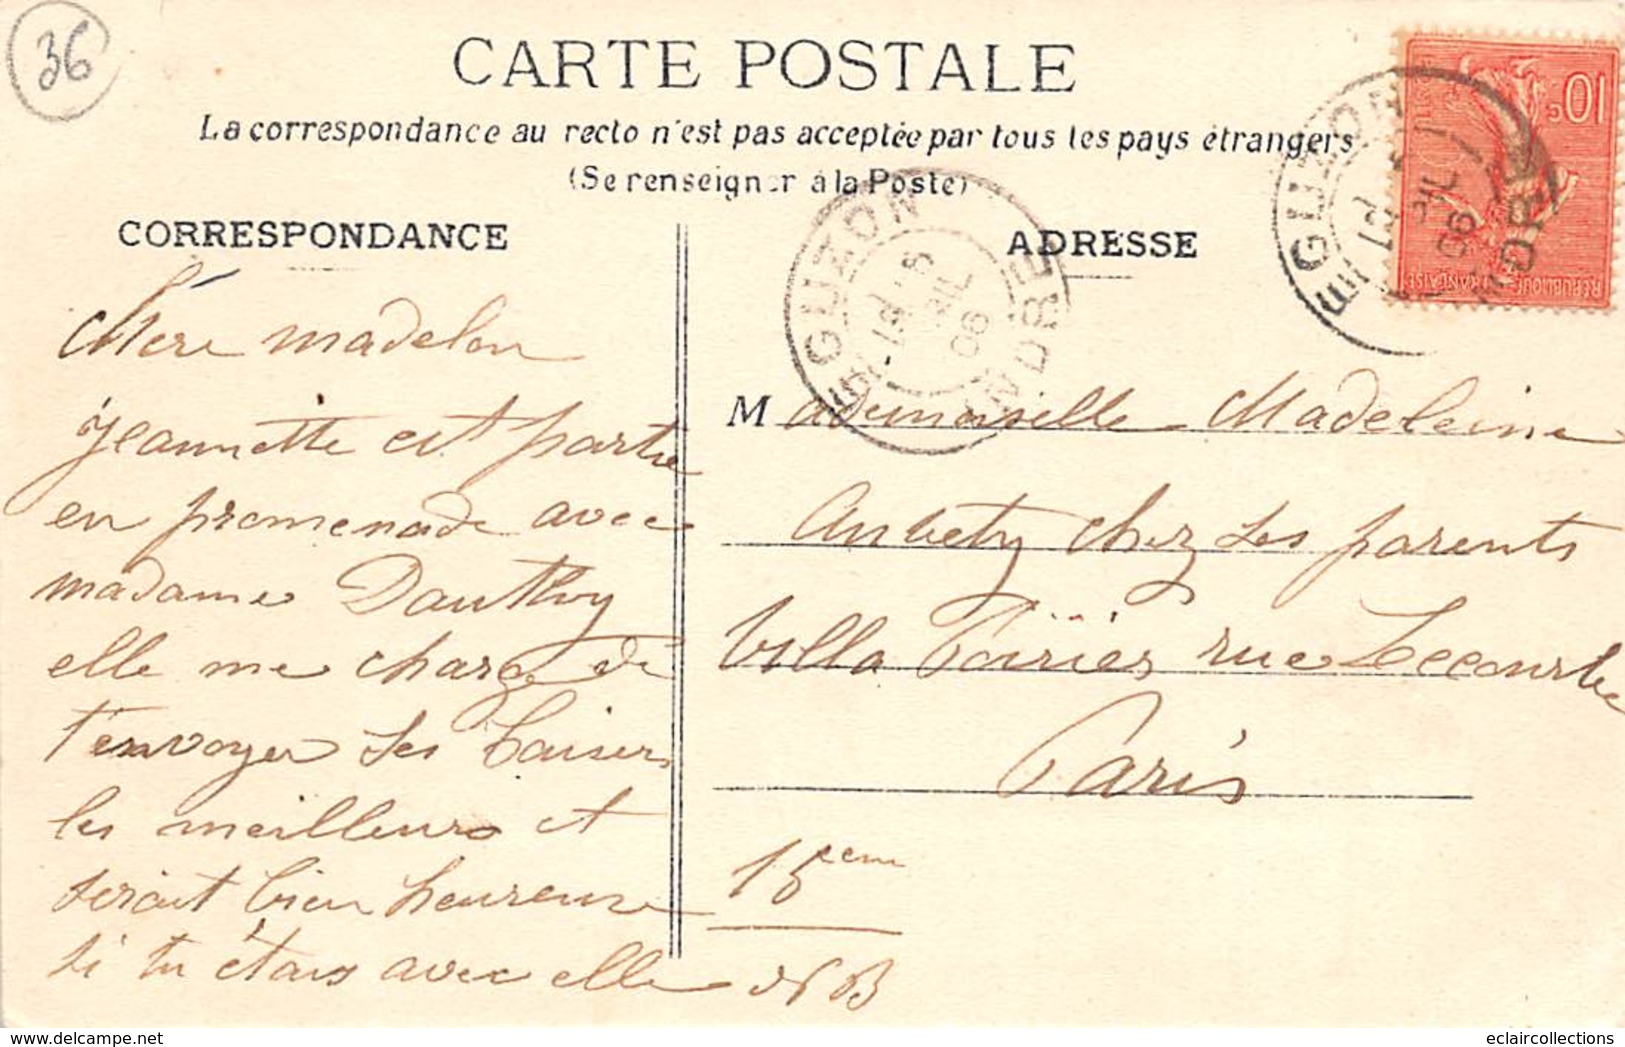 36
CARTE POSTALE
La correspondance au recto n'est pas acceptée par tous les pays étrangers
(Se renseigner à la Poste)
CORRESPONDANCE
ADRESSE
EGUZON
INDRE
06
EGUZON
INDRE
06
10c
RÉPUBLIQUE FRANÇAISE
Chère madelon
Jeannette est partie
en promenade avec
madame Dauthuy
elle me charge de
t'envoyer ses baisers
les meilleurs et
serait bien heureuse
si tu étais avec elle
Mademoiselle Madeleine
chez ses parents
Villa Poirier rue Lecourbe
Paris
15eem
eclaircollections